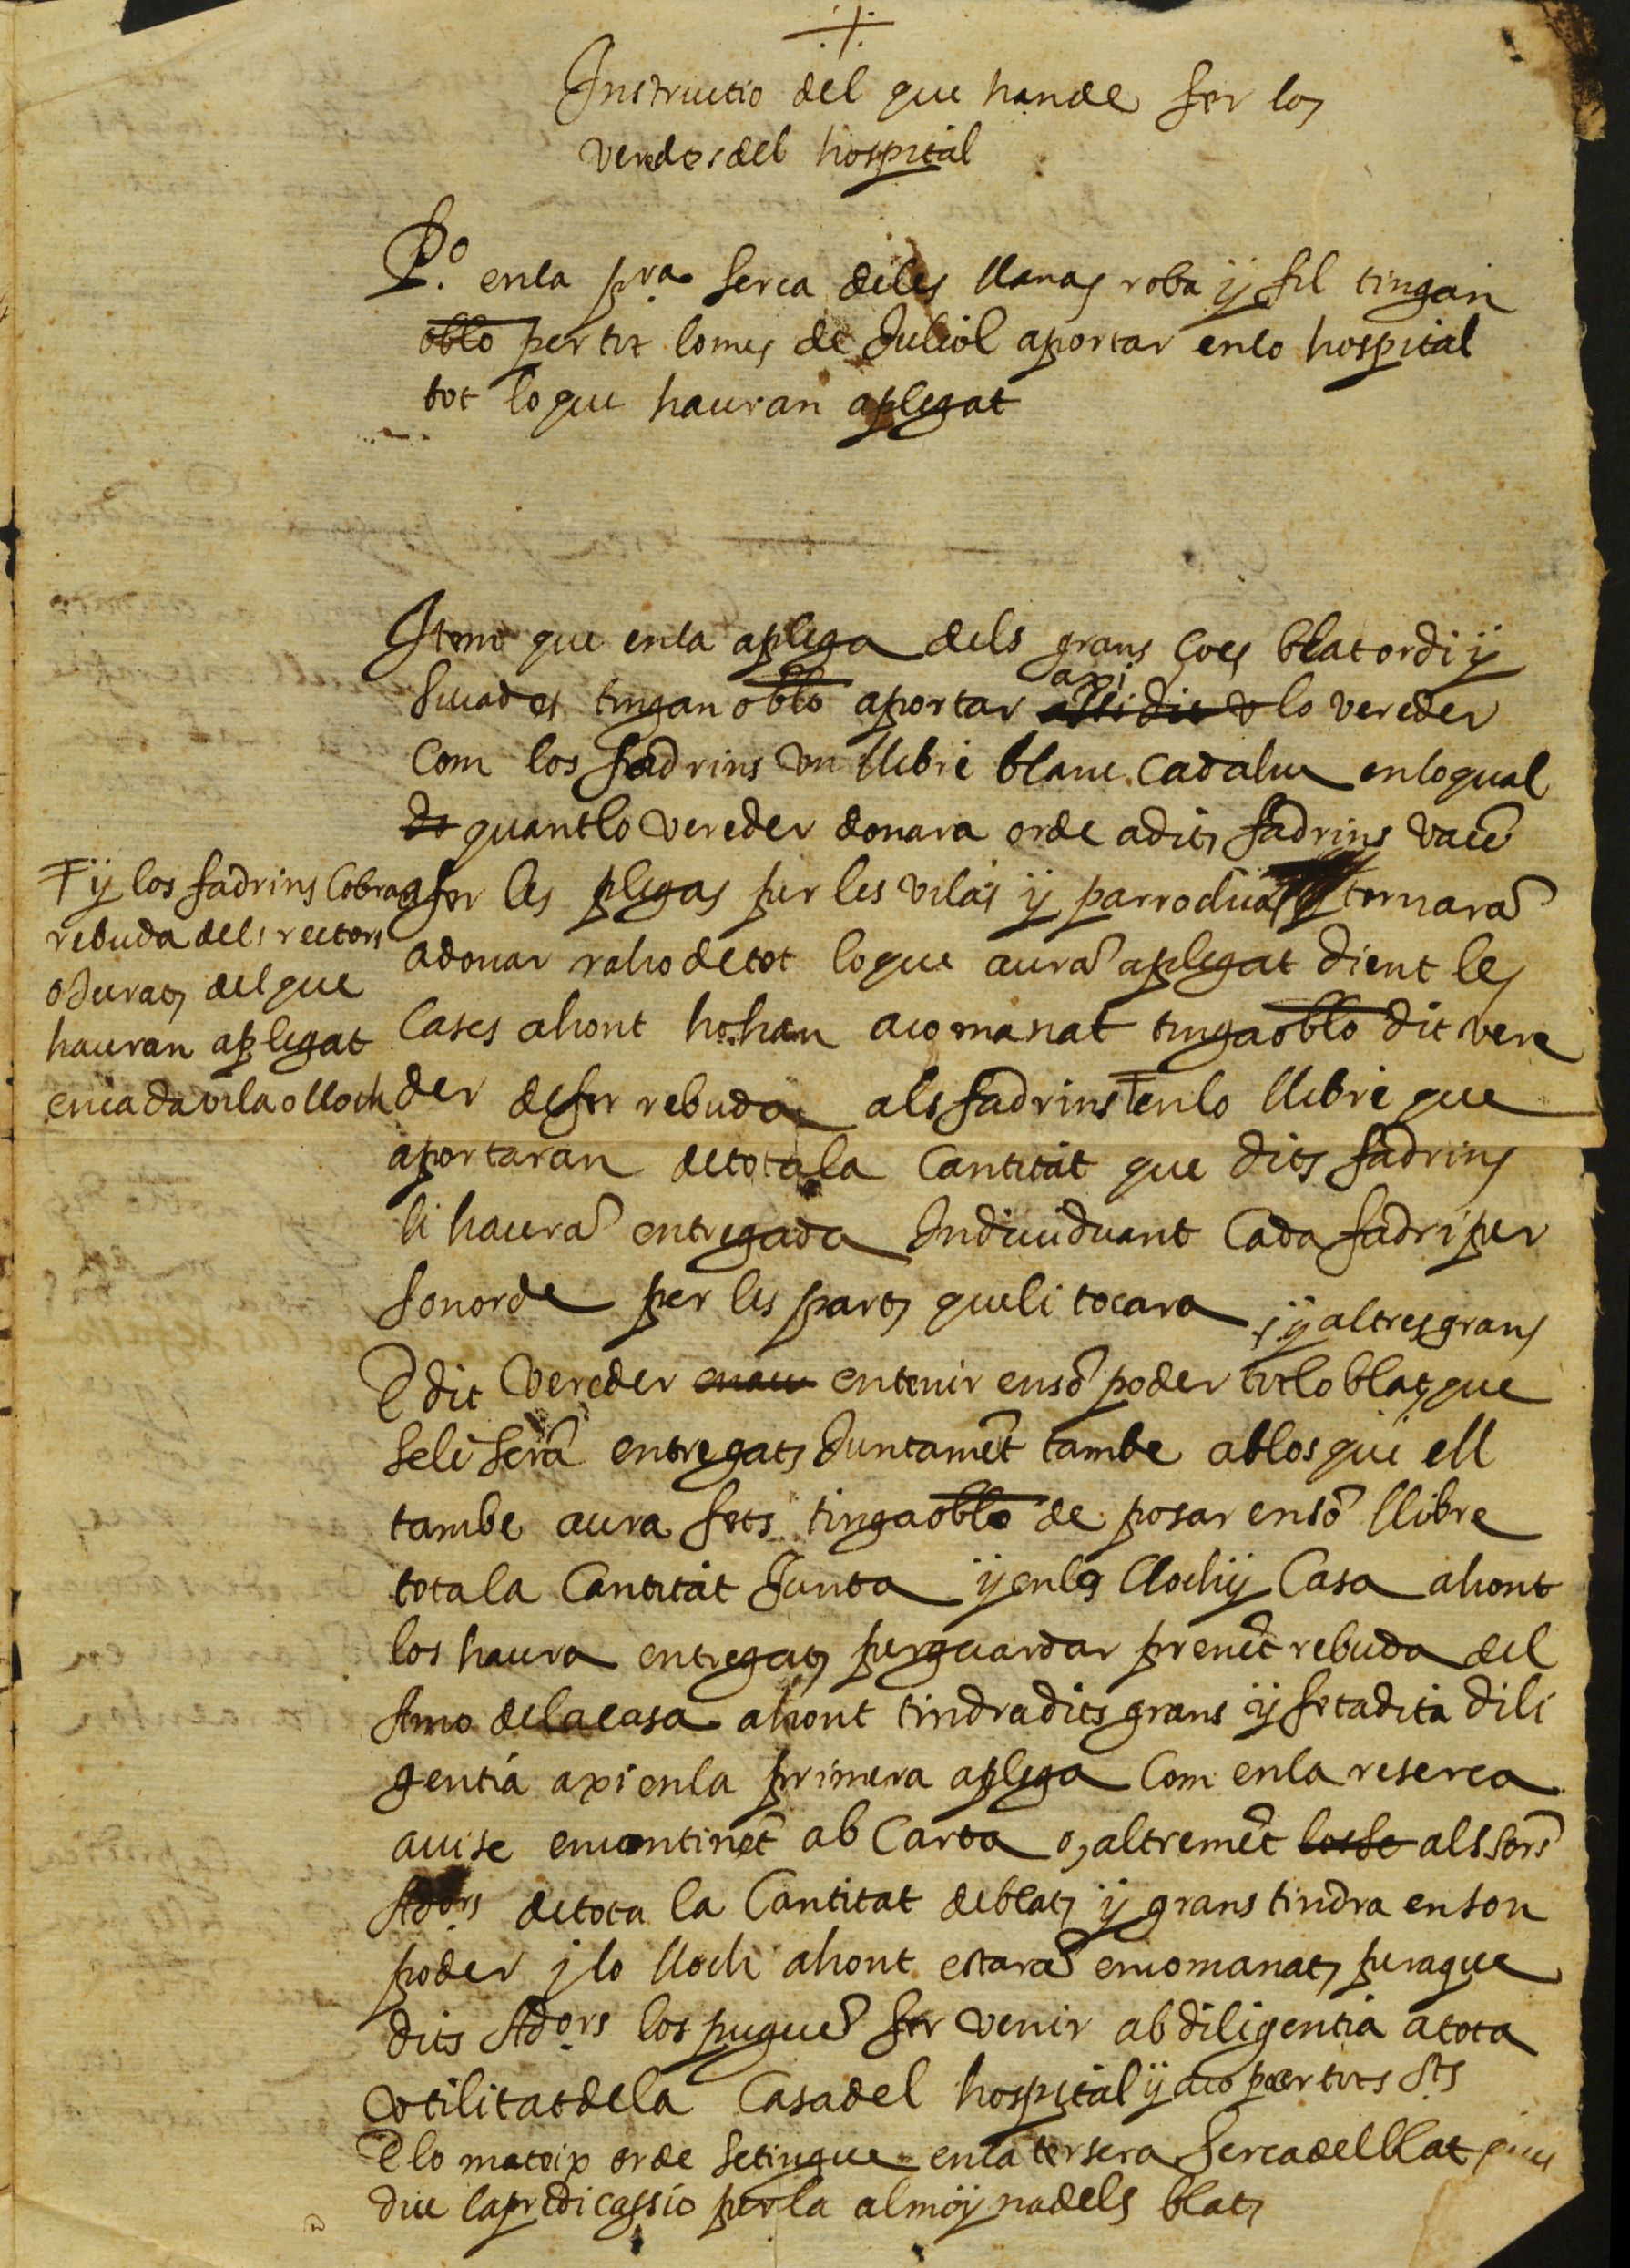 Instructio del que hande fer los
vereders del hospital
Pº. enla pra. serca deles llanas roba ÿ fil tingan
oblo per tot lo mes de Juliol aportar enlo hospital
tot lo que hauran aplegat
Item que enla aplega dels grans ço es blat ordi ÿ
sivades tingan oblo aportar axi lo vereder
com los fadrins un llibre blanc cadahu enloqual
quant lo vereder donara orde a dits fadrins vaẽ
a fer les plegas per les vilas ÿ parroquias ÿ tornarã
a donar raho de tot lo que aurã aplegat dient les
cases ahont ho han acomanat tinga oblo dit vere
der de fer rebuda als fadrins Ŧ enlo llibre que
Ŧ ÿ los fadrins cobran
rebuda dels rectors
o Jurats del que
hauran aplegat
en cada vila o lloch
aportaran de tota la cantitat que dits fadrins
li haurã entregada Individuant cada fadri per
son orde per les parts que li tocara
ÿ altres grans
E dit vereder en tenir en sõ poder tot lo blat, que
se li serã entregats Juntamẽt tambe ab los que ell
tambe aura fets tinga oblo de posar en sõ llibre
tota la cantitat Junta ÿ en lo lloch ÿ casa ahont
los haura entregats per guardar prenẽt rebuda del
Amo de la casa ahont tindra dits grans ÿ feta dita dili
gentia axi en la primera aplega com en la reserca
avise encontinẽt ab carta o, altremẽt als sors
Adors de tota la cantitat de blats ÿ grans tindra en son
poder j lo lloch ahont estarã encomanats peraque
dits Adors los puguẽ fer venir ab diligentia a tota
utilitat de la casa del hospital ÿ aço per tots sts
E lo mateix orde se tingue en la tersera serca del blat
diu la predicassio per la almoÿna dels blats